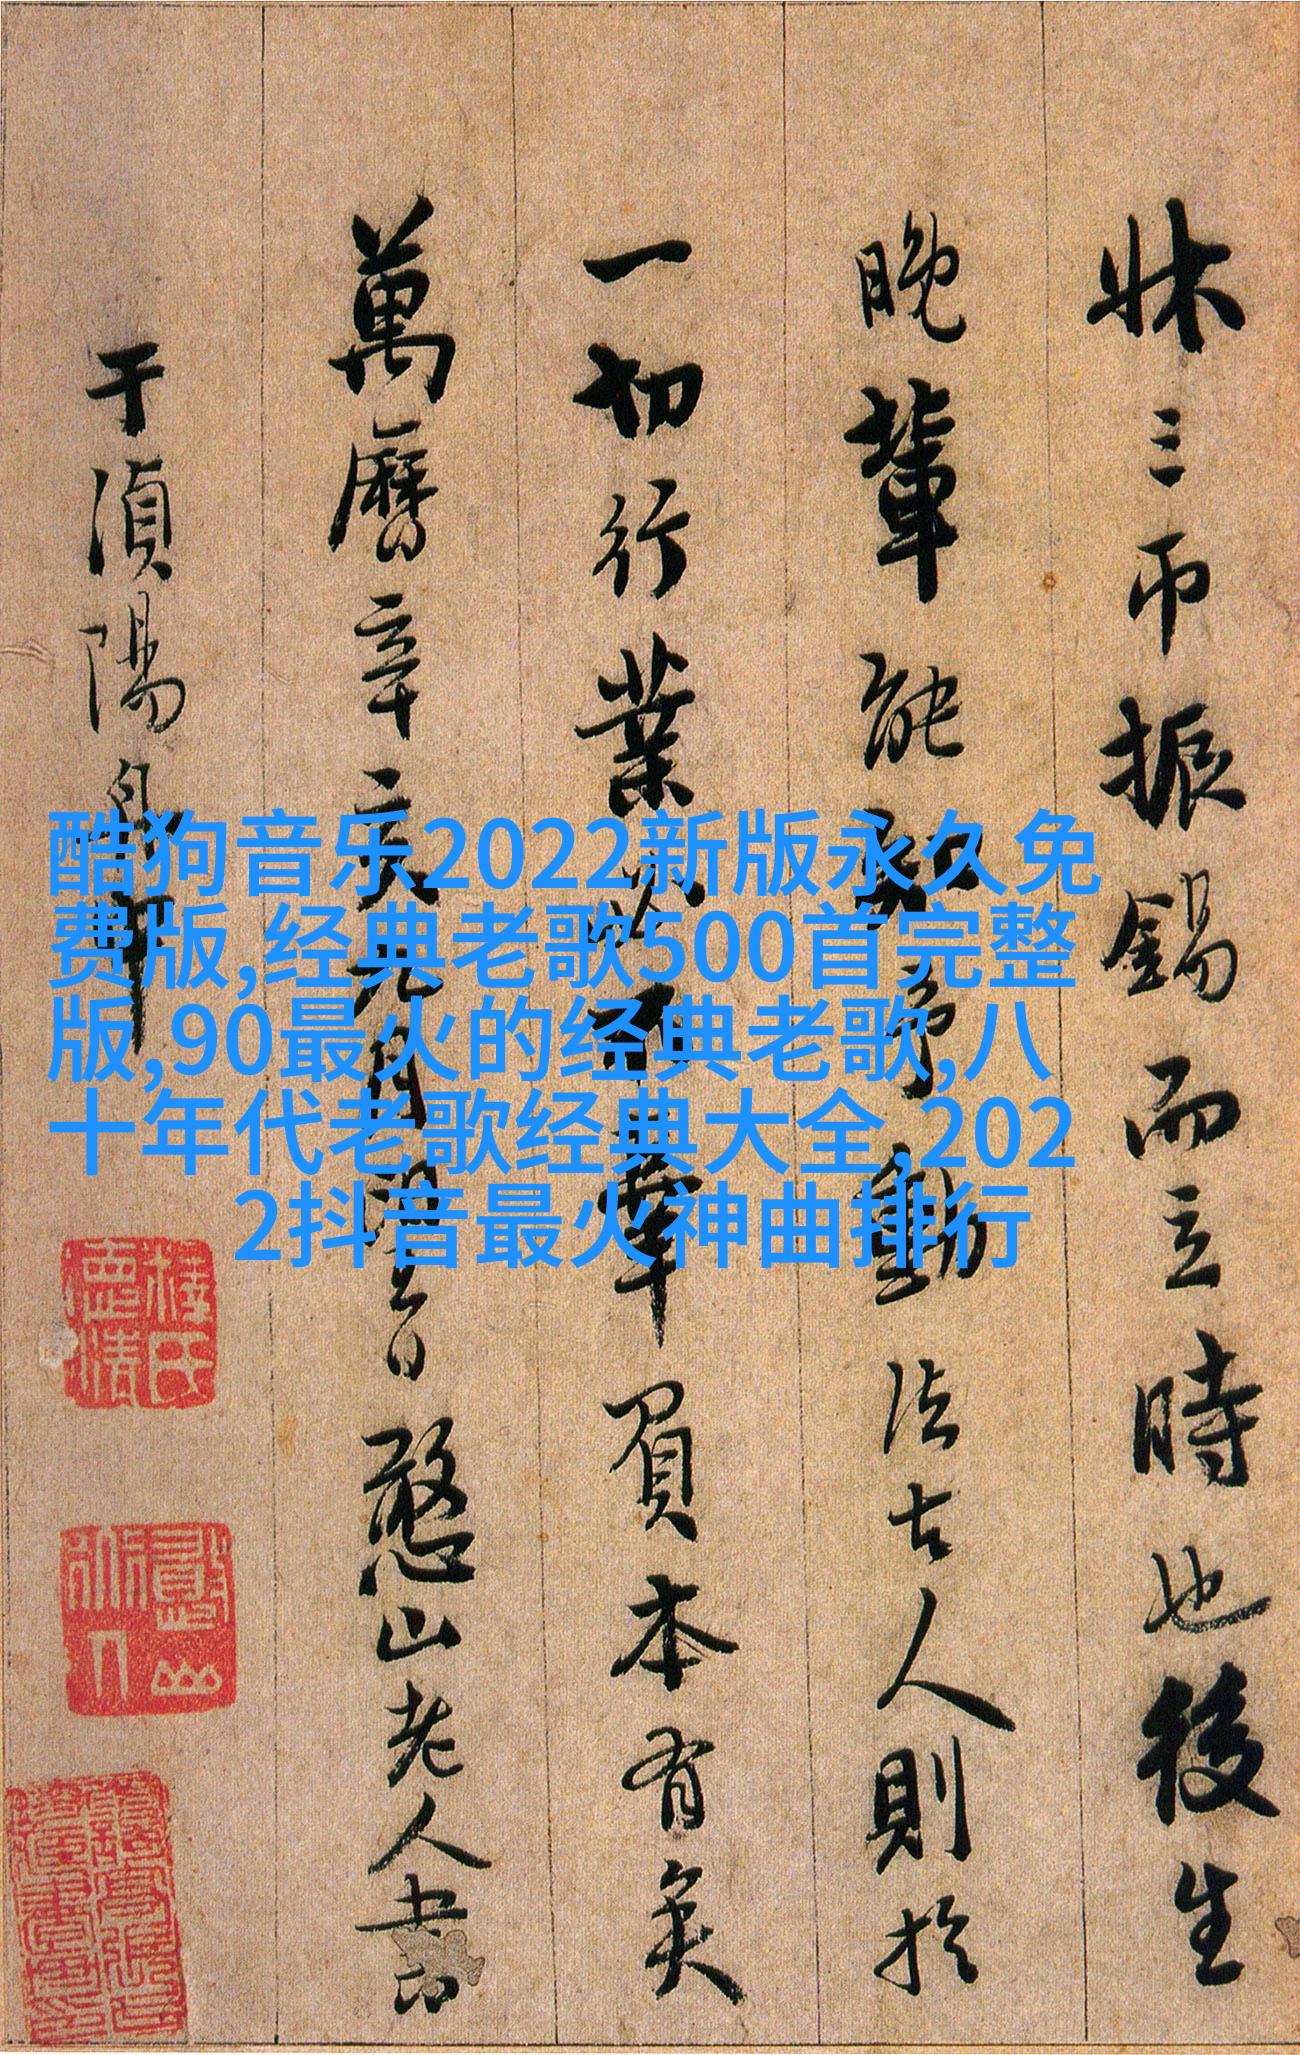 牀三帀振錫而立時也後生
晚輩能知爭動法古人則於
一切行業必不草草負本有矣
萬曆辛亥九月閏書憨山老人書
于湞陽舟中
酷狗音乐2022新版永久免
费版,经典老歌500首完整
版,90最火的经典老歌,八
十年代老歌经典大全,202
2抖音最火神曲排行